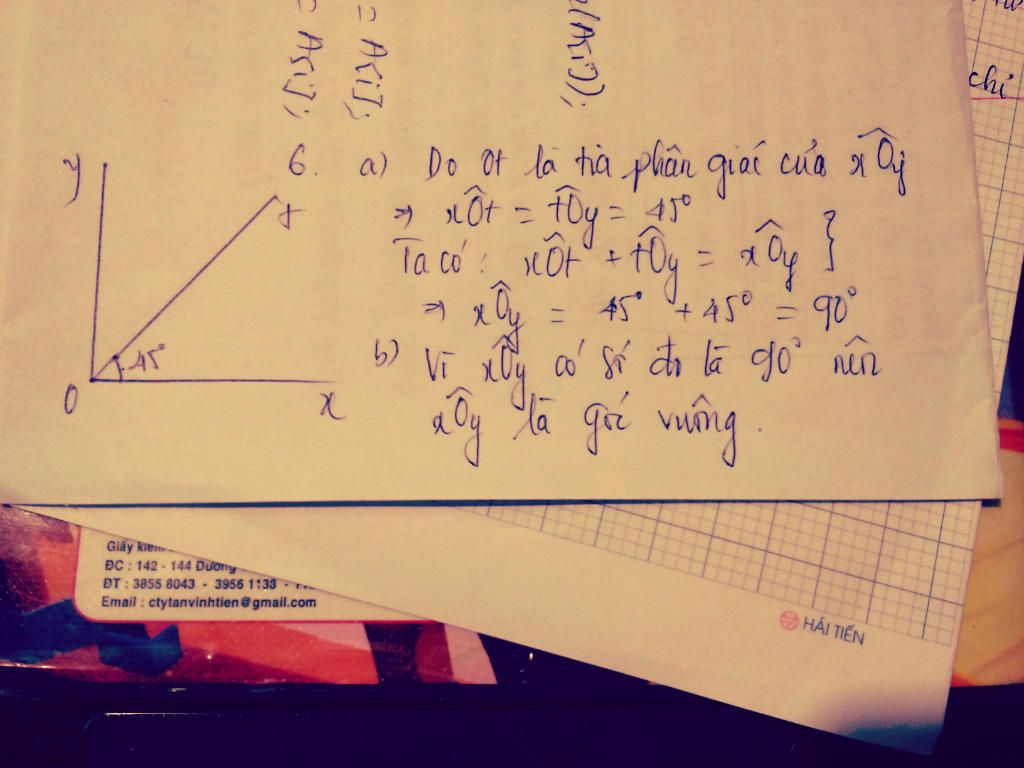 = A[i];
= A[i];
(A[i]);
chỉ
y
t
45°
O
x
6. a) Do Ot là tia phân giác của xÔy
⇒ xÔt = tÔy = 45°
Ta có: xÔt + tÔy = xÔy }
⇒ xÔy = 45° + 45° = 90°
b) Vì xÔy có số đo là 90° nên
xÔy là góc vuông.
Giấy kiểm
ĐC : 142 - 144 Dương
ĐT : 3855 8043 - 3956 1133 -
Email : ctytanvinhtien@gmail.com
HẢI TIẾN